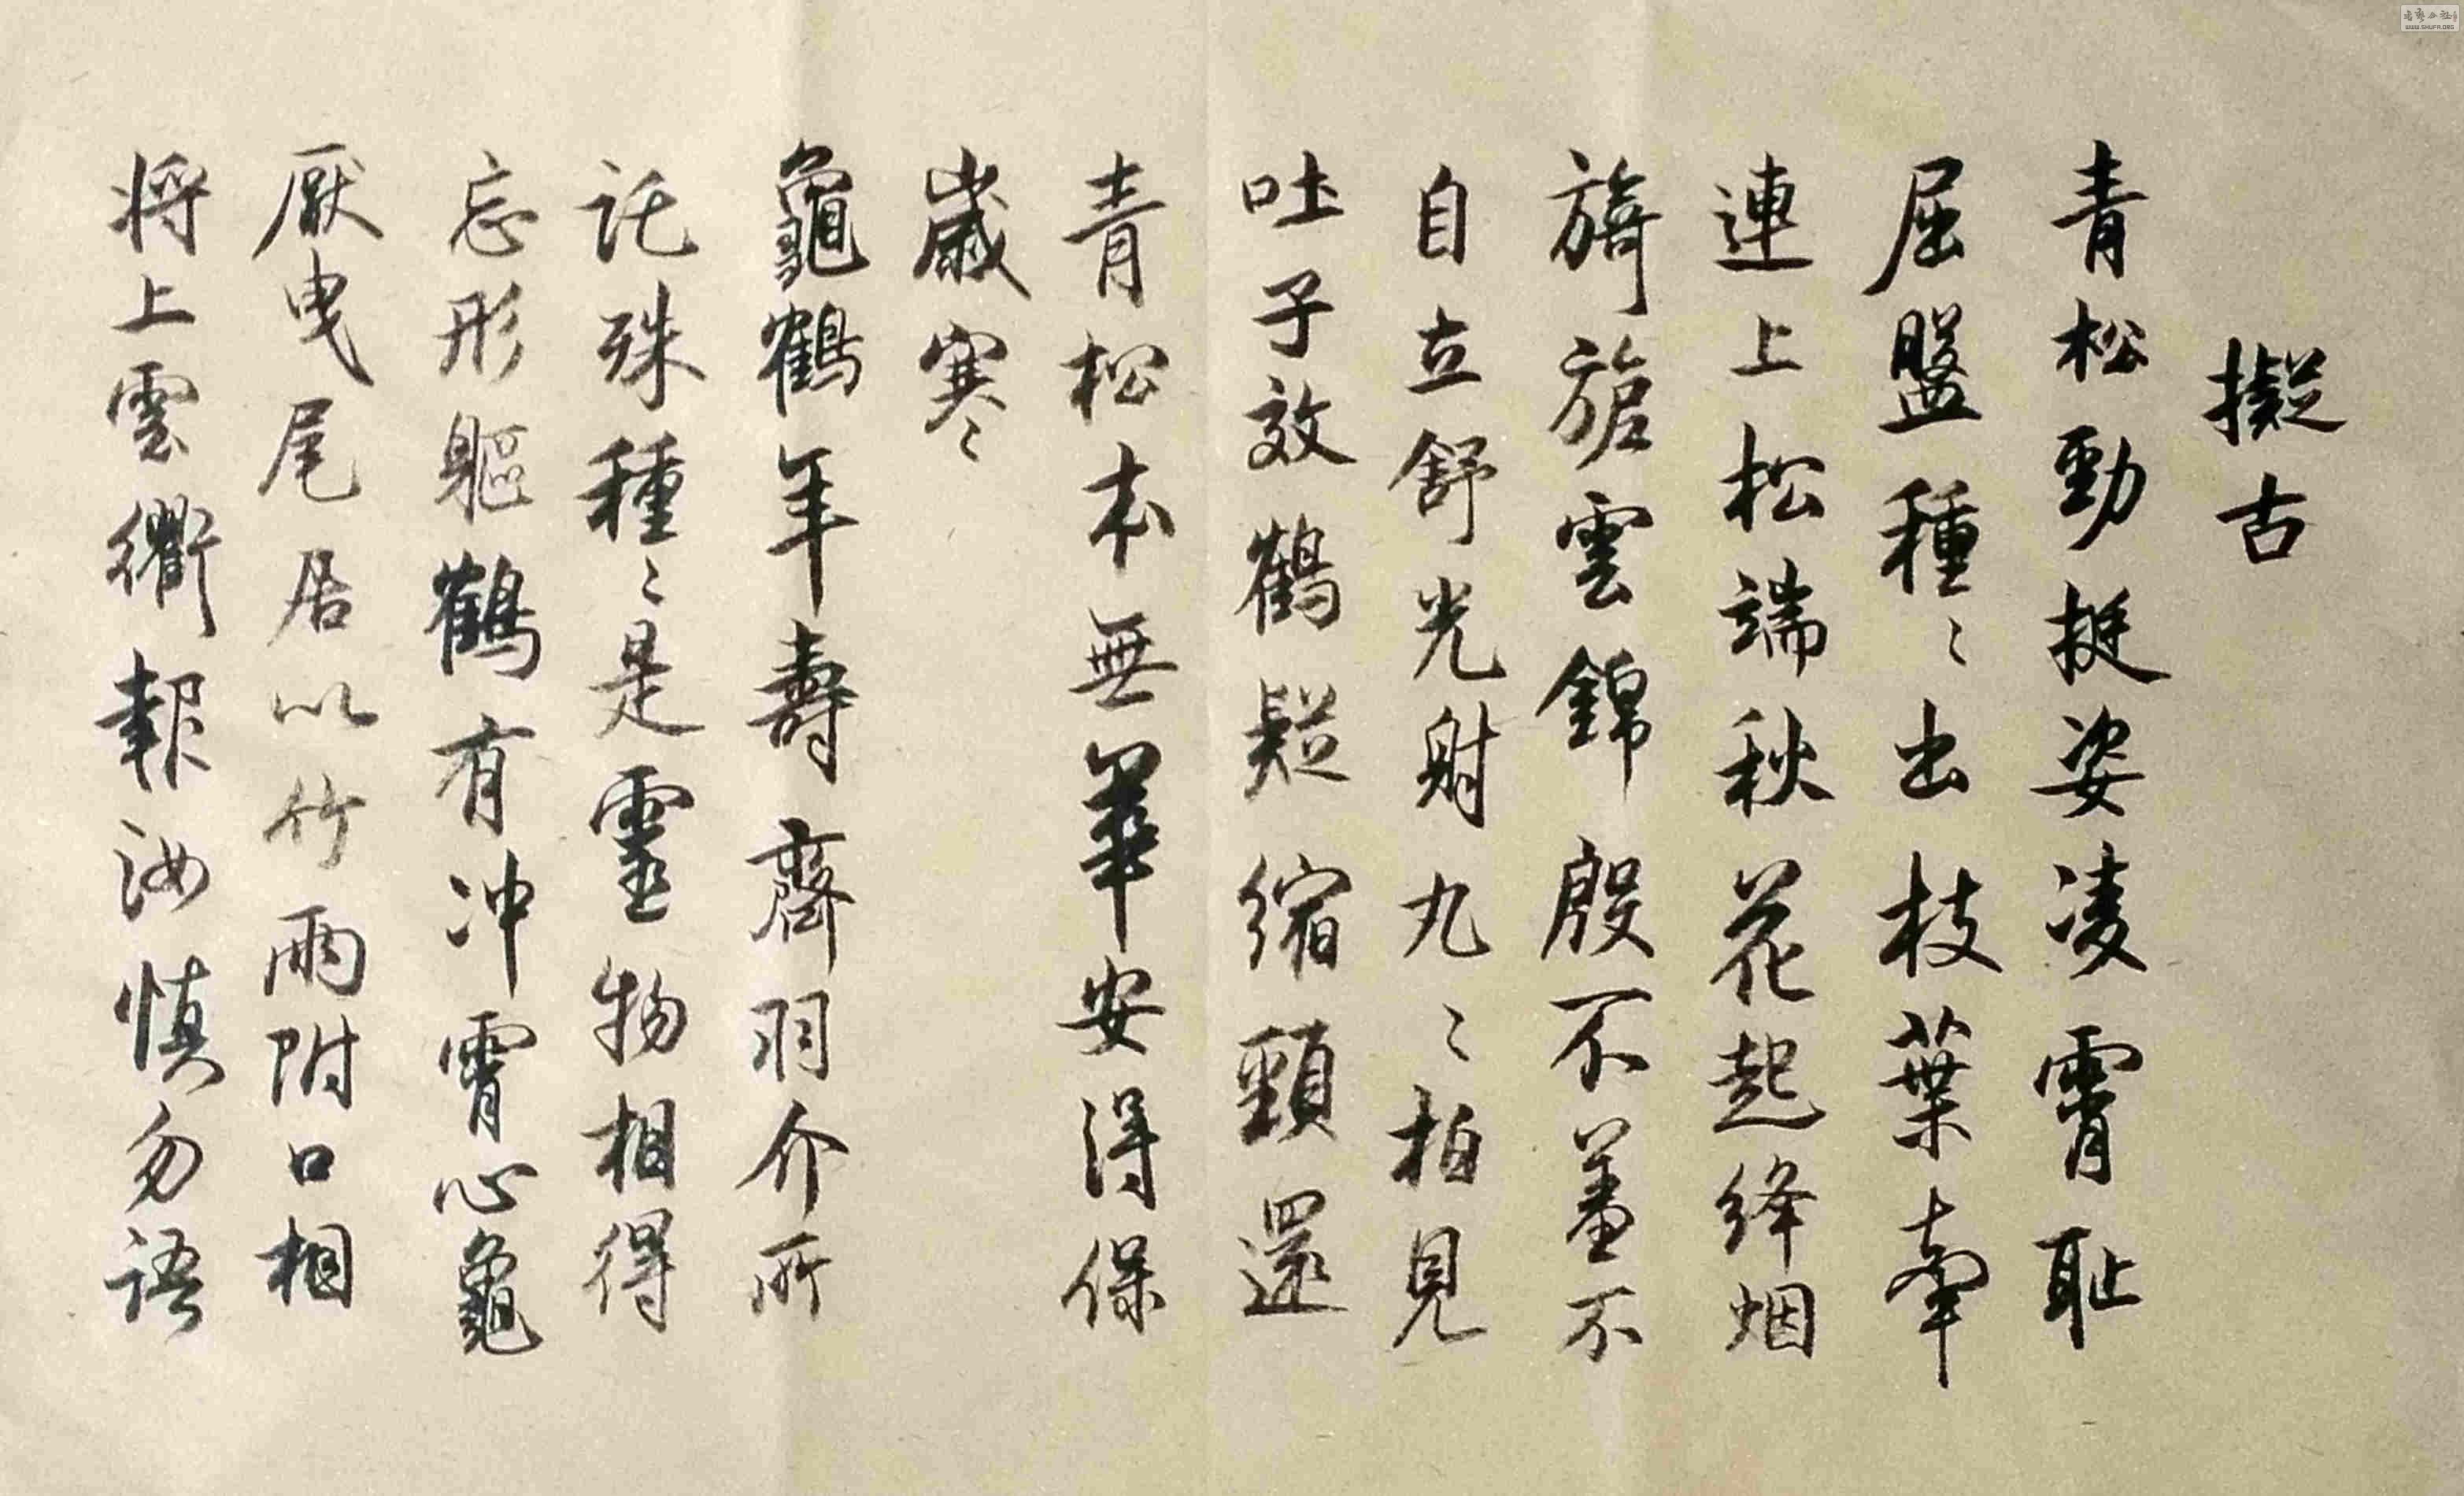 擬古
青松勁挺姿凌霄耻
屈盤種〻出枝葉牽
連上松端秋花起絳烟
旖旎雲錦殷不羞不
自立舒光射丸〻柏見
吐子效鶴疑縮頸還
青松本無華安得保
歲寒〻
龜鶴年壽齊羽介所
託殊種〻是靈物相得
忘形軀鶴有冲霄心龜
厭曳尾居以竹兩附口相
将上雲衢報汝慎勿語
WWW.SHUFA.ORG